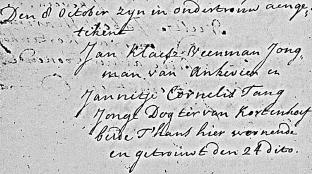 Den 8 October zyn in ondertrouw aenge
tekent
Jan Klaesz Veenman Jong
man van Ankeveen en
Jannitje Cornelis Tang
Jonge Dogter van Kortenhoef
beide Thans hier woonende
en getrouwt den 24 dito.